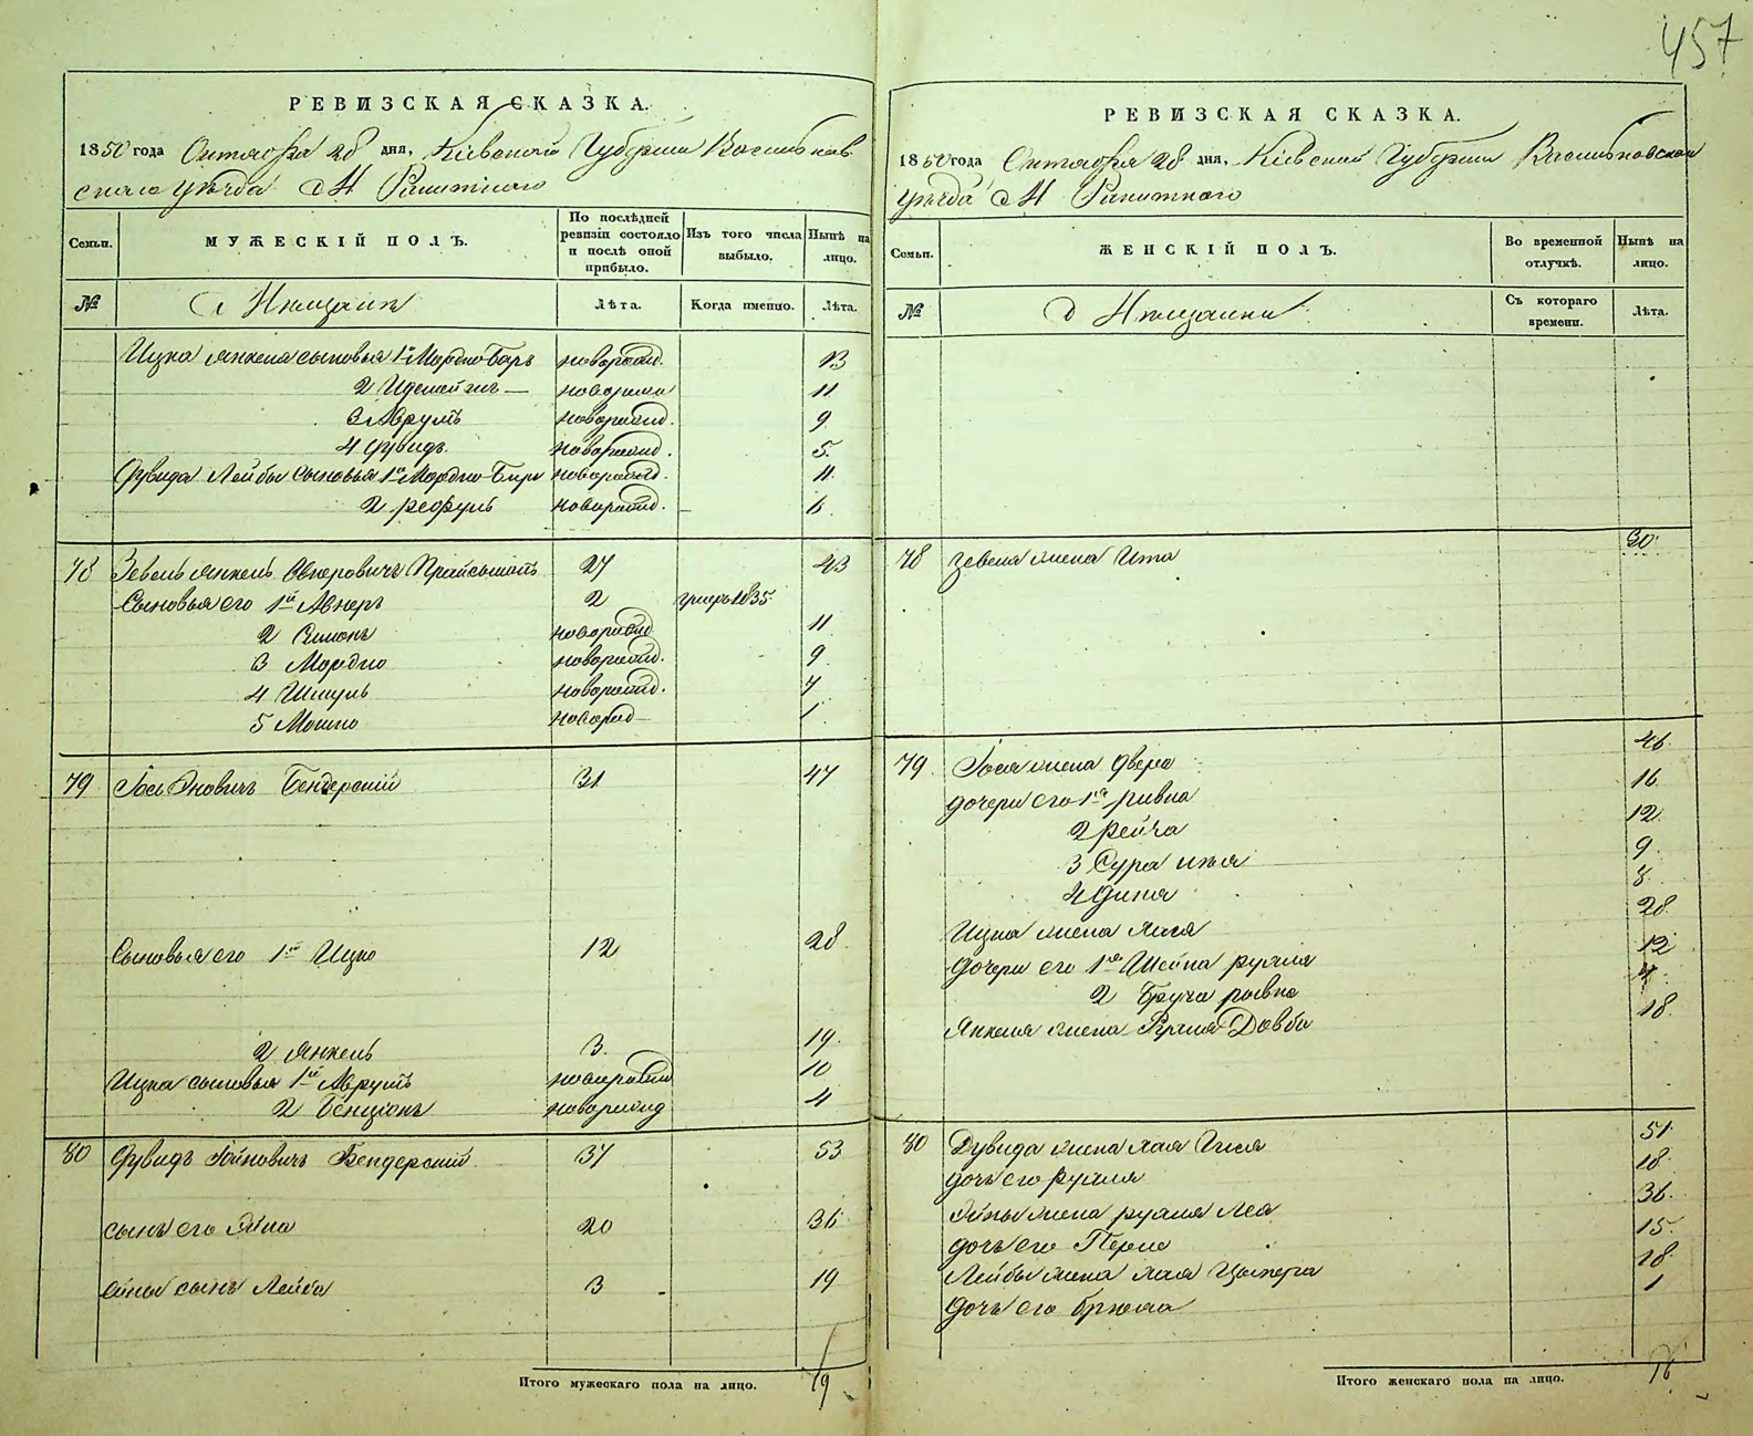 457
РЕВИЗСКАЯ СКАЗКА.
1850 года Октября 28 дня, Кіевской Губерніи Васильков
скаго уѣзда М Ракитного
Семьи.
МУЖЕСКІЙ ПОЛЪ.
По послѣдней ревизіи состояло и послѣ оной прибыло.
Изъ того числа выбыло.
Нынѣ на лицо.
№
Лѣта.
Когда именно.
Лѣта.
Ицка Янкеля сыновья 1й Мордко Беръ новорожд. 13
2 новорожд 11
3 Аврумъ новорожд. 9
4 Дувидъ новорожд. 5.
Дувида Лейбы сыновья 1й Мордко-Беръ новорожд. 11.
2 новорожд. 6.
78 Зевель Янкель Овшеровичъ 27 43
Сыновья его 1й Авнеръ 2 умеръ 1835.
2 Симонъ новорожд 11
3 Мордко новорожд. 9.
4 Шмуль новорожд. 7
5 Мошко новорожд 1
79 Іось Бендерскій 31 47
Сыновья его 1й Ицко 12 28.
2 Янкель 3. 19.
Ицка сыновья 1й Аврумъ новорожд 10
2 Бенціонъ новорожд 4
80 Дувидъ Бендерскій 37 53
сынъ его 20 36
сынъ Лейба 3 19
Итого мужескаго пола на лицо. 19
РЕВИЗСКАЯ СКАЗКА.
1850 года Октября 28 дня, Кіевской Губерніи Васильковскаго
уѣзда М Ракитного
Семьи.
ЖЕНСКІЙ ПОЛЪ.
Во временной отлучкѣ.
Нынѣ на лицо.
№
Съ котораго времени.
Лѣта.
78 Зевеля жена Ита 30.
79. Іося жена Двера 46.
дочери его 1я Ривка 16.
2 Рейза 12.
3 Сура 9.
4 Дина 8.
Ицка жена Хая 28.
дочери его 1я Шейна Рухля 12
2 Бруха 4.
Янкеля жена 18.
80 Дувида жена Хая 51.
дочь его Рухля 18.
жена Рухля Леа 36.
дочь его Перля 15.
Лейбы жена Хая 18.
дочь его 1
Итого женскаго пола на лицо. 16